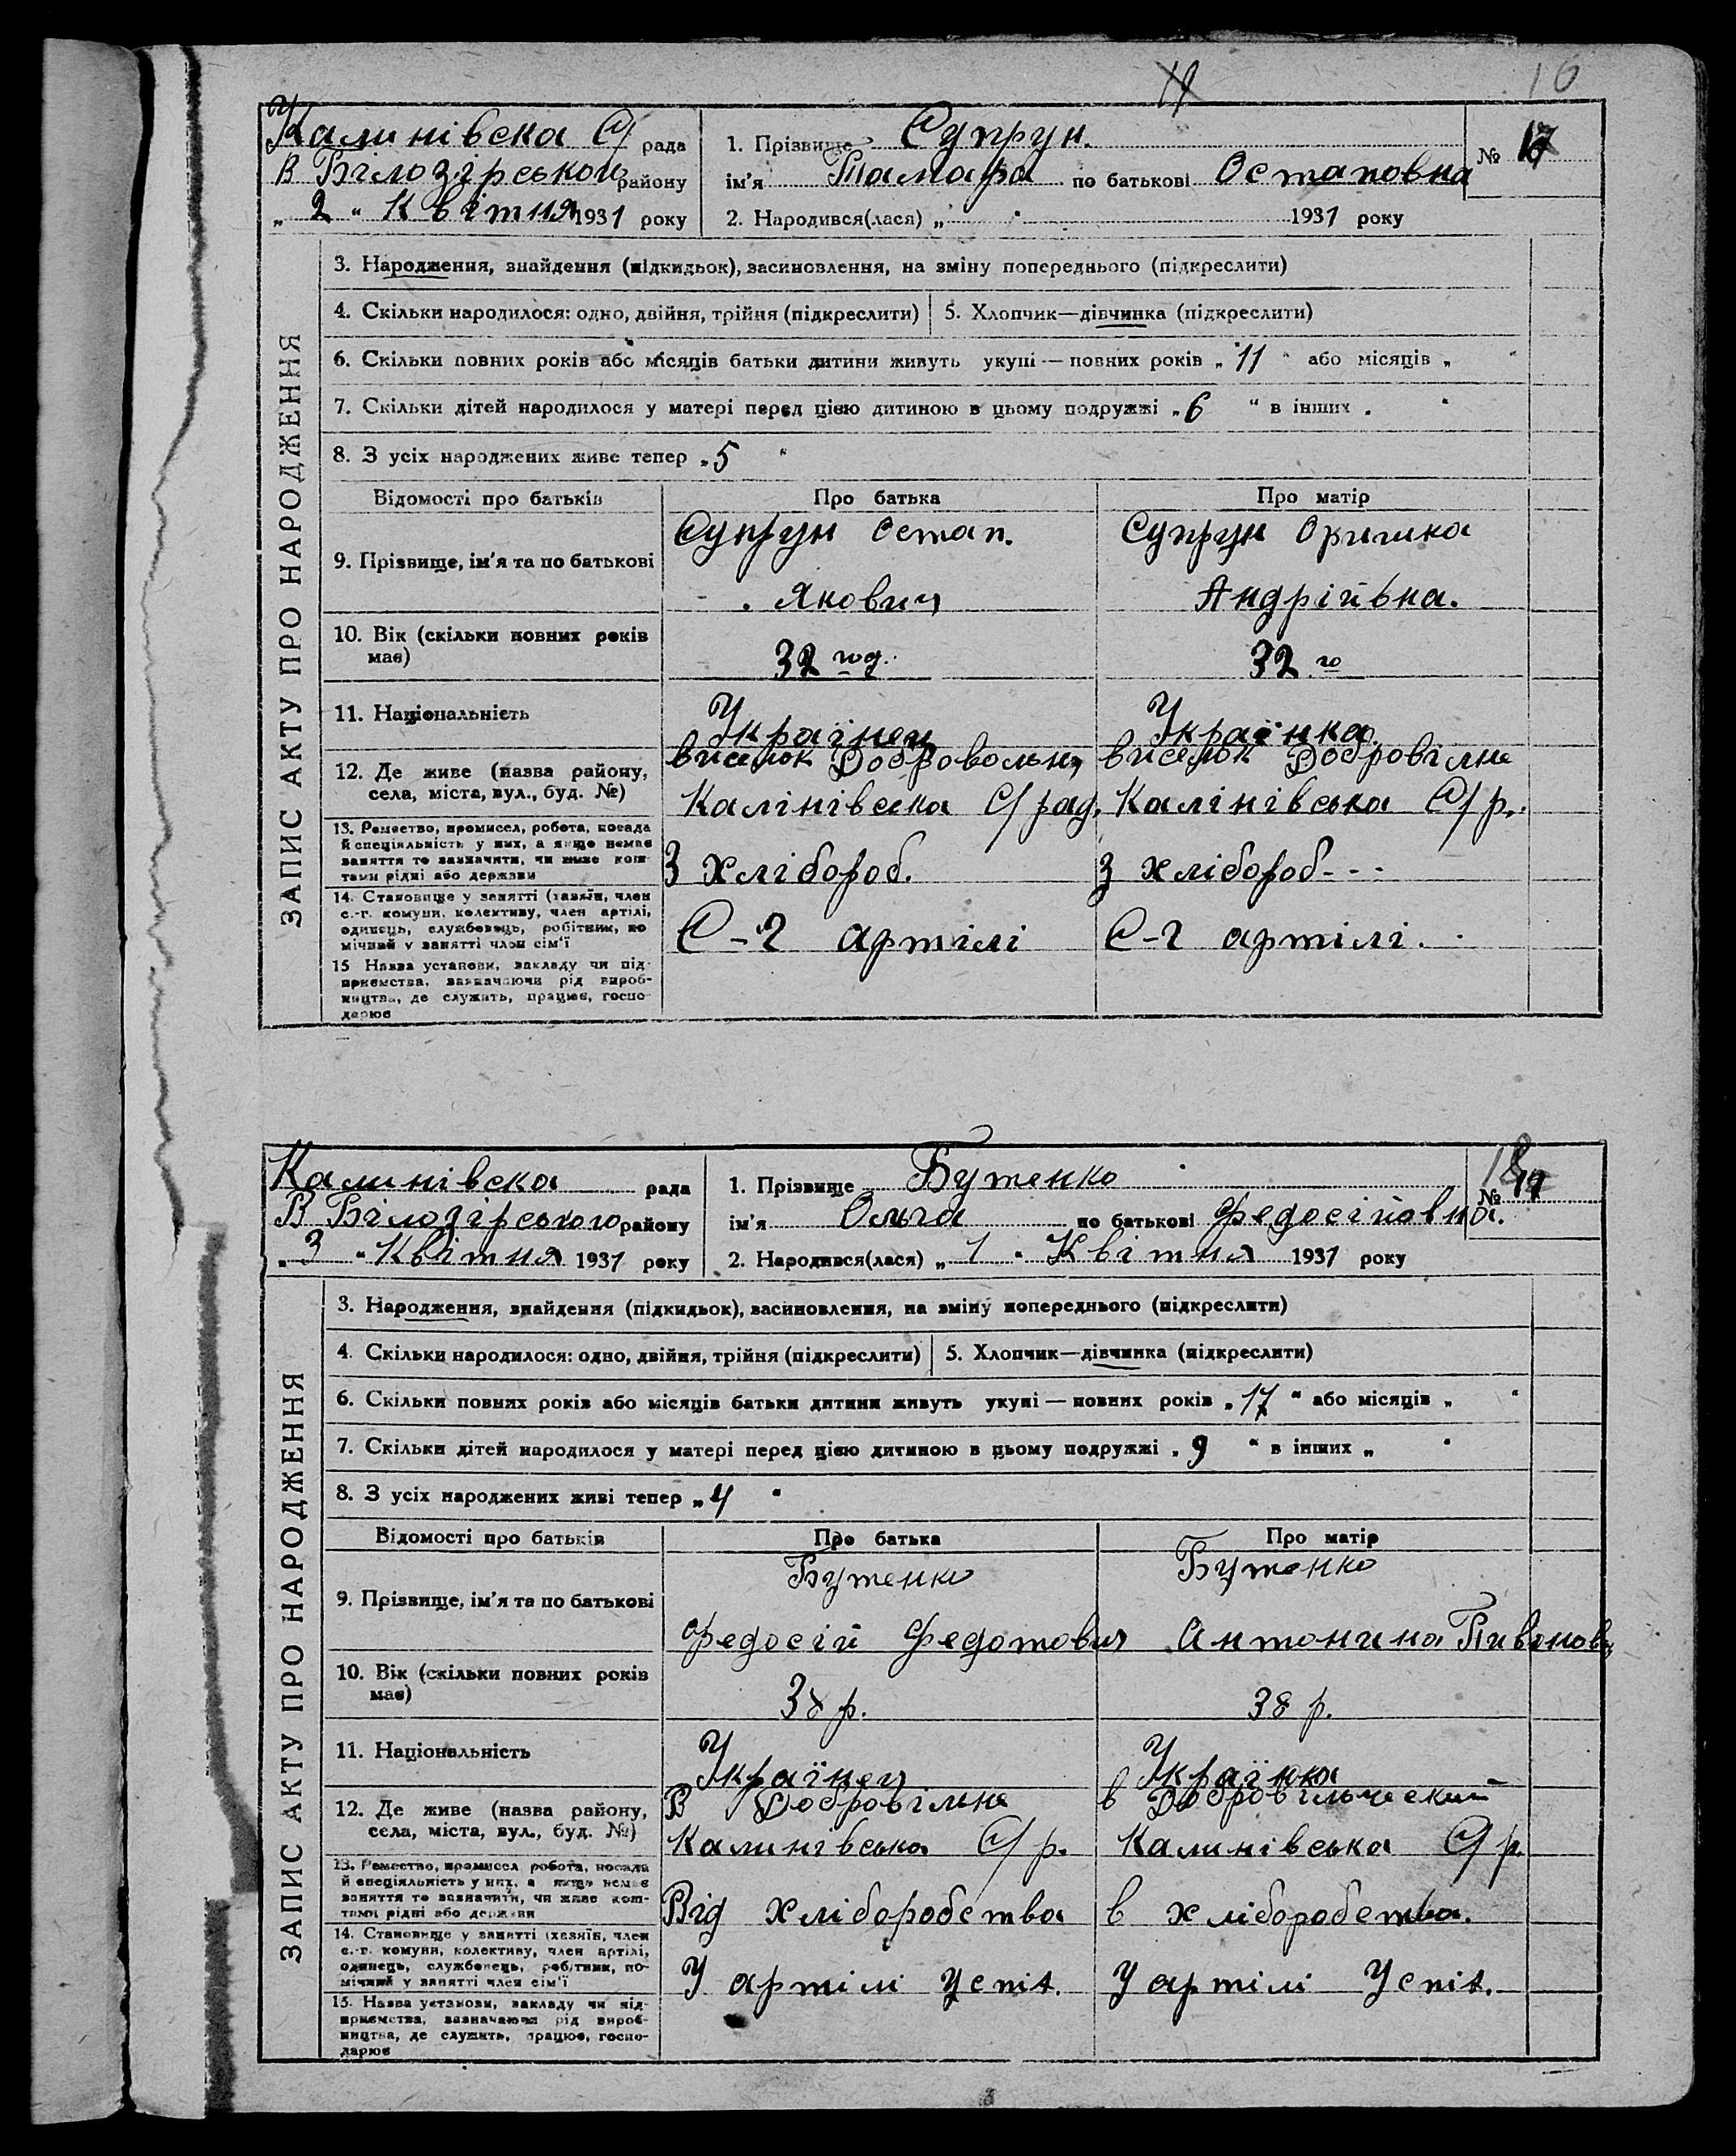 16
Калинівска С/ рада
В Білозірськом району
„ 2 “ Квітня 1931 року
1. Прізвище Супрун.
ім'я Тамара по батькові Остаповна
№ 17
2. Народився(лася) „ “ 1931 року
ЗАПИС АКТУ ПРО НАРОДЖЕННЯ
3. Народження, знайдення (підкидьок), васиновлення, на зміну попереднього (підкреслити)
4. Скільки народилося: одно, двійня, трійня (підкреслити) 5. Хлопчик—дівчинка (підкреслити)
6. Скільки повних років або місяців батьки дитини живуть укупі — повних років „ 11 “ або місяців „ “
7. Скільки дітей народилося у матері перед цією дитиною в цьому подружжі „ 6 “ в інших „ “
8. З усіх народжених живе тепер „ 5 “
Відомості про батьків Про батька Про матір
9. Прізвище, ім'я та по батькові
Супрун Остап. Супрун Оришка
Якович Андрійвна.
10. Вік (скільки повних років має)
32 год. 32 го
11. Національність
Українец Українка
12. Де живе (назва району, села, міста, вул., буд. №)
виселок Добровольн виселок Добровілне
Калінівска С/рад. Калінівська С/р.
13. Ремество, промисел, робота, посада
й спеціяльність у них, а якщо немає
заняття то зазначити, чи живе кош-
тами рідні або держави
З хлібороб. З хлібороб - - -
14. Становище у занятті (хазяїн, член
с.-г. комуни, колективу, член артілі,
одинець, службовець, робітник, по
мічний у занятті член сім'ї
С-г артілі С-г артілі.
15 Назва установи, закладу чи під-
приємства, зазначаючи рід вироб-
ництва, де служить, працює, госпо-
дарює
Калинівска рада
В Білозірського району
„ 3 “ Квітня 1931 року
1. Прізвище Бутенко
ім'я Ольга по батькові Федосійовна.
№ 18
2. Народився(лася) „ 1 “ Квітня 1931 року
ЗАПИС АКТУ ПРО НАРОДЖЕННЯ
3. Народження, знайдення (підкидьок), васиновлення, на зміну попереднього (підкреслити)
4. Скільки народилося: одно, двійня, трійня (підкреслити) 5. Хлопчик—дівчинка (підкреслити)
6. Скільки повних років або місяців батьки дитини живуть укупі — повних років „ 17 “ або місяців „ “
7. Скільки дітей народилося у матері перед цією дитиною в цьому подружжі „ 9 “ в інших „ “
8. З усіх народжених живі тепер „ 4 “
Відомості про батьків Про батька Про матір
9. Прізвище, ім'я та по батькові
Бутенко Бутенко
Федосій Федотович Антонина Пивонов
10. Вік (скільки повних років має)
38 р. 38 р.
11. Національність
Українец Українка
12. Де живе (назва району, села, міста, вул., буд. №)
В Добровільне в Добровільческий
Калинівська С/р. Калинівська С/р
13. Ремество, промисел робота, посада
й спеціяльність у них, а якщо немає
заняття то зазначити, чи живе кош-
тами рідні або держави
Від хліборобства в хліборобства.
14. Становище у занятті (хазяїн, член
с.-г. комуни, колективу, член артілі,
одинець, службовець, робітник, по-
мічний у занятті член сім'ї
У артілі Успіх. У артілі Успіх.
15. Назва установи, закладу чи під-
приємства, зазначаючи рід вироб-
ництва, де служить, працює, госпо-
дарює